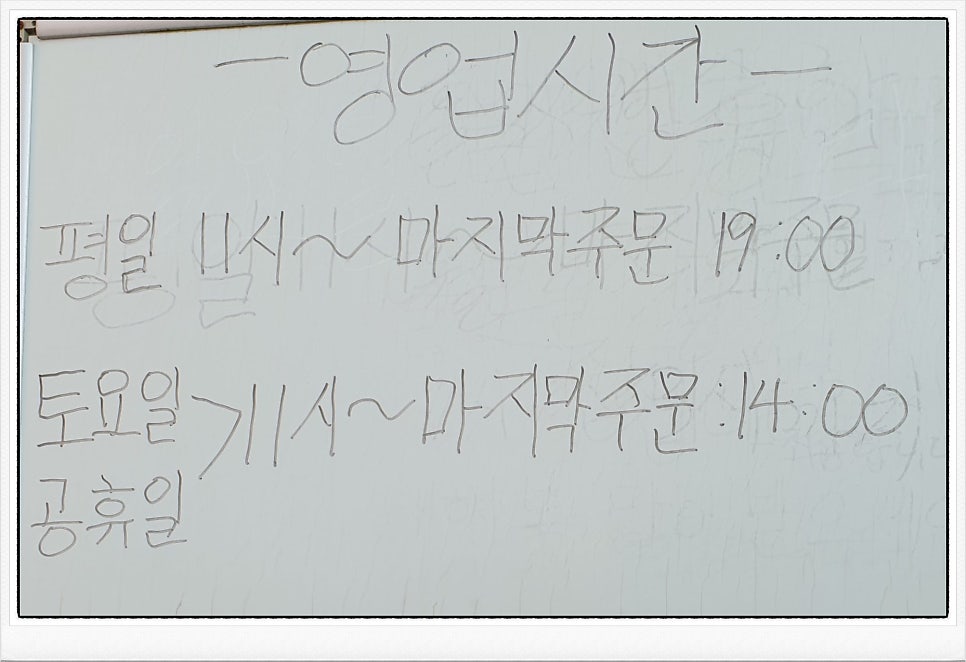 -영업시간-
평일 11시~마지막주문 19:00
토요일 > 11시~마지막주문:14:00
공휴일